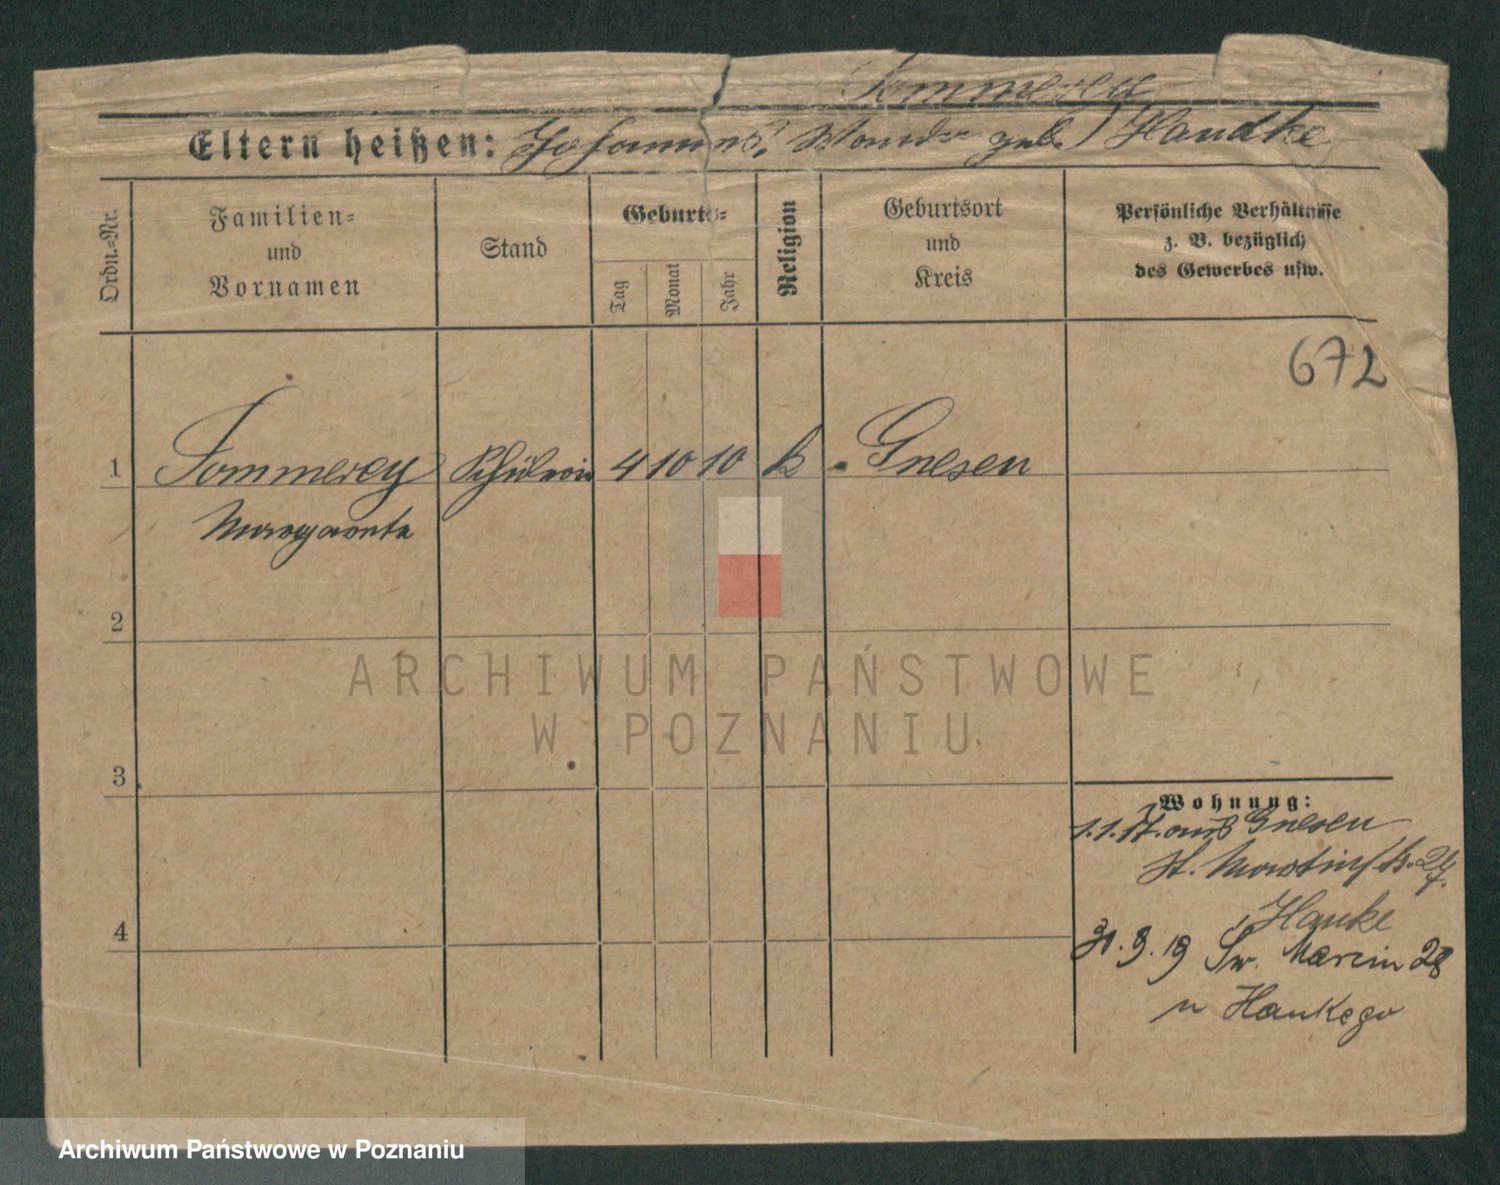 Sommerey
Eltern heißen: Johannes, Wanda geb. Handke
Ordn.=Nr.
Familien=
und
Vornamen
Stand
Geburts=
Tag
Monat
Jahr
Religion
Geburtsort
und
Kreis
Persönliche Verhältnisse
z. B. bezüglich
des Gewerbes usw.
672
1 Sommerey Schülerin 4 10 10 k Gnesen
Margareta
2
3
4
Wohnung:
1.1.17. aus Gnesen
St. Martinstr. 27.
Hanke
31.3.19 Św. Marcin 28
u Hankego
ARCHIWUM PAŃSTWOWE
W POZNANIU
Archiwum Państwowe w Poznaniu